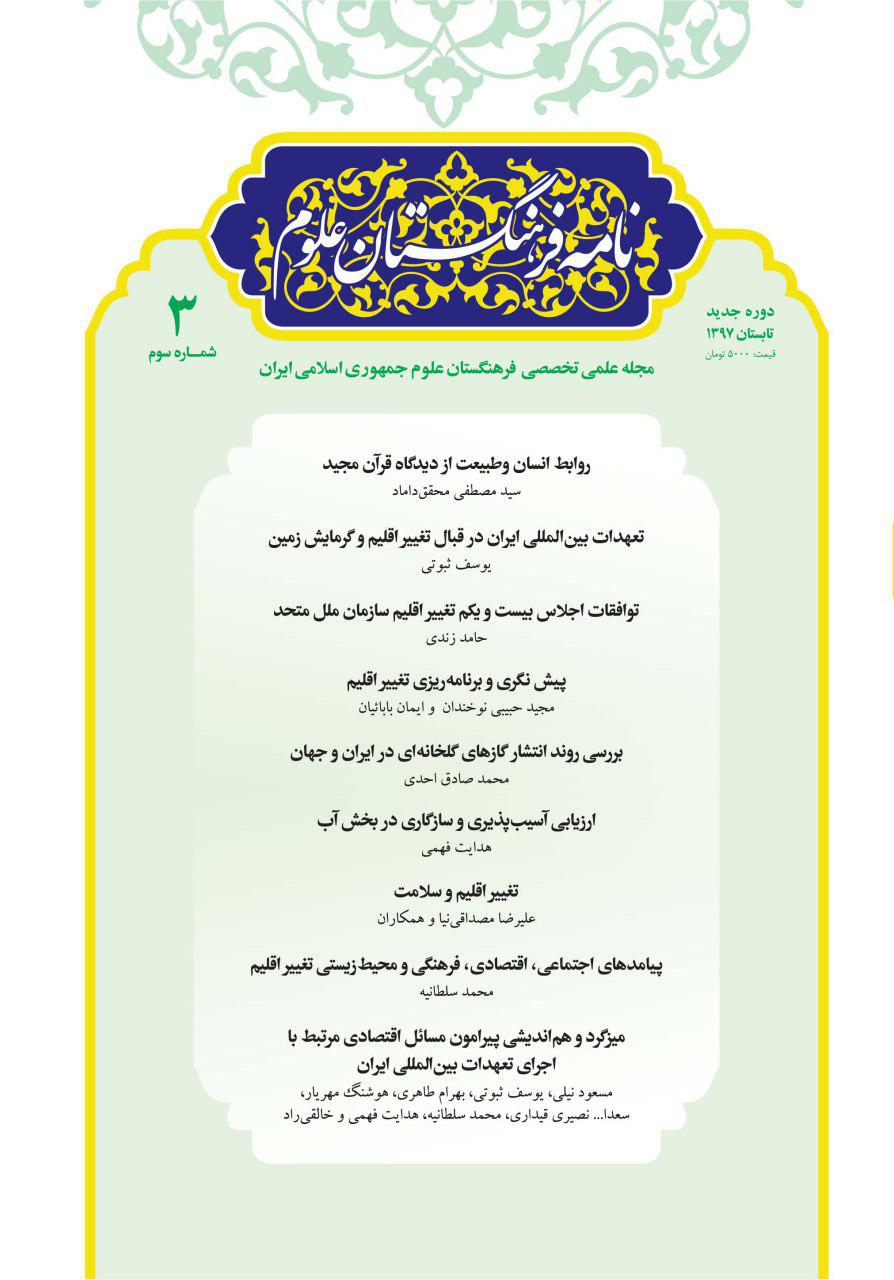 نامه فرهنگستان علوم
دوره جدید
تابستان ۱۳۹۷
قیمت: ۵۰۰۰ تومان
۳
شمـــاره سوم
مجله علمی تخصصی فرهنگستان علوم جمهوری اسلامی ایران
روابط انسان وطبیعت از دیدگاه قرآن مجید
سید مصطفی محقق‌داماد
تعهدات بین‌المللی ایران در قبال تغییر اقلیم و گرمایش زمین
یوسف ثبوتی
توافقات اجلاس بیست و یکم تغییر اقلیم سازمان ملل متحد
حامد زندی
پیش نگری و برنامه‌ریزی تغییر اقلیم
مجید حبیبی نوخندان و ایمان بابائیان
بررسی روند انتشار گازهای گلخانه‌ای در ایران و جهان
محمد صادق احدی
ارزیابی آسیب‌پذیری و سازگاری در بخش آب
هدایت فهمی
تغییر اقلیم و سلامت
علیرضا مصداقی‌نیا و همکاران
پیامدهای اجتماعی، اقتصادی، فرهنگی و محیط‌زیستی تغییر اقلیم
محمد سلطانیه
میزگرد و هم‌اندیشی پیرامون مسائل اقتصادی مرتبط با
اجرای تعهدات بین‌المللی ایران
مسعود نیلی، یوسف ثبوتی، بهرام طاهری، هوشنگ مهریار،
سعدا... نصیری قیداری، محمد سلطانیه، هدایت فهمی و خالقی‌راد